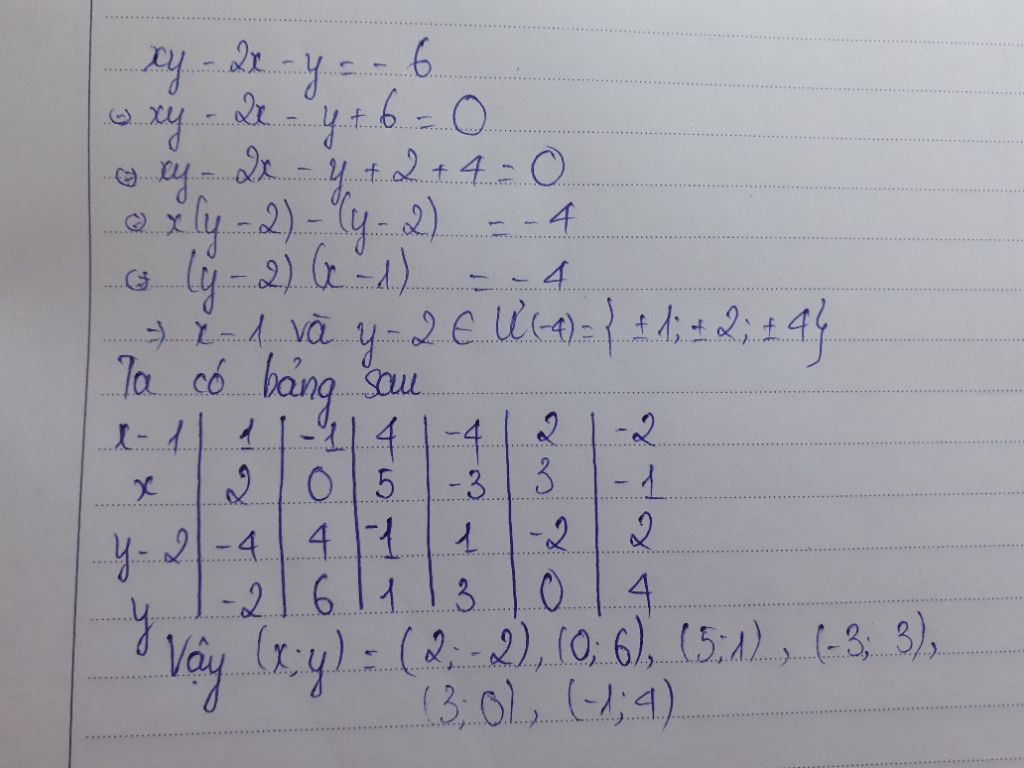 xy - 2x - y = - 6
⇔ xy - 2x - y + 6 = 0
⇔ xy - 2x - y + 2 + 4 = 0
⇔ x(y - 2) - (y - 2) = - 4
⇔ (y - 2) (x - 1) = - 4
⇒ x - 1 và y - 2 ∈ Ư(-4) = { ±1; ±2; ±4}
Ta có bảng sau
x - 1 | 1 | -1 | 4 | -4 | 2 | -2
x | 2 | 0 | 5 | -3 | 3 | -1
y - 2 | -4 | 4 | -1 | 1 | -2 | 2
y | -2 | 6 | 1 | 3 | 0 | 4
Vậy (x; y) = (2; -2), (0; 6), (5; 1), (-3; 3),
(3; 0), (-1; 4)